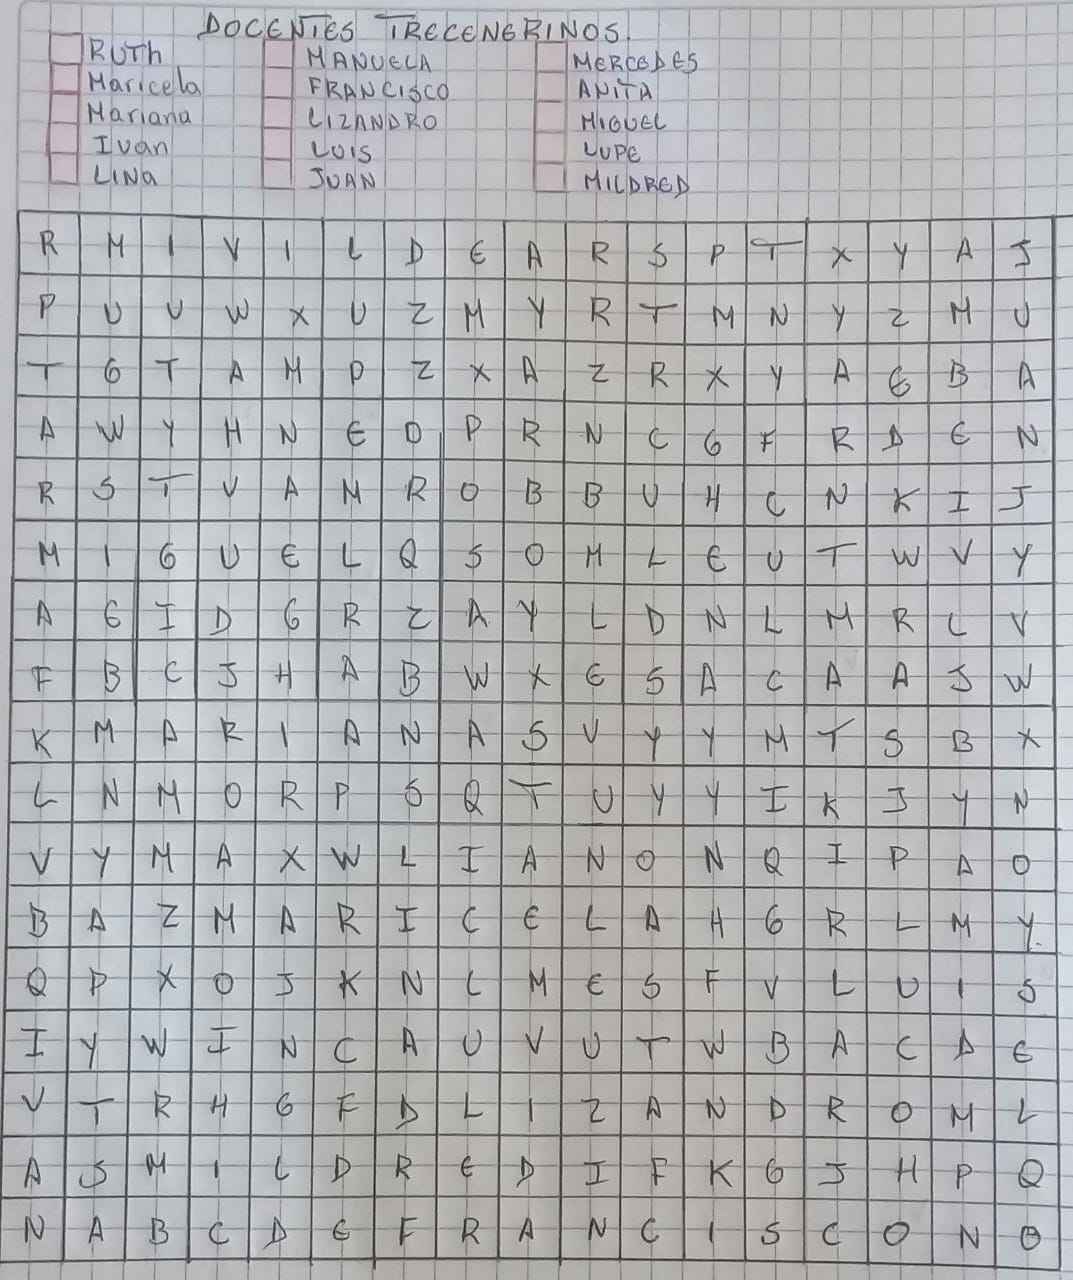 DOCENTES TRECENERINOS.
RUTH MANUELA MERCEDES
Maricela FRANCISCO ANITA
Mariana LIZANDRO MIGUEL
Ivan LUIS LUPE
LINa JUAN MILDRED
R M I V I L D E A R S P T X Y A J
P U U W X U Z M Y R T M N Y Z M U
T G T A M P Z X A Z R X Y A E B A
A W Y H N E O P R N C G F R D E N
R S T V A M R O B B U H C N K I J
M I G U E L Q S O M L E U T W V Y
A E I D G R Z A Y L D N L M R L V
F B C J H A B W X E S A C A A J W
K M A R I A N A S V Y Y M T S B X
L N M O R P S Q T U Y Y I K J Y N
V Y M A X W L I A N O N Q I P A O
B A Z M A R I C E L A H G R L M Y.
Q P X O J K N L M E S F V L U I S
I Y W I N C A U V U T W B A C D E
V T R H G F D L I Z A N D R O M L
A S M I L D R E D I F K G J H P Q
N A B C D E F R A N C I S C O N O